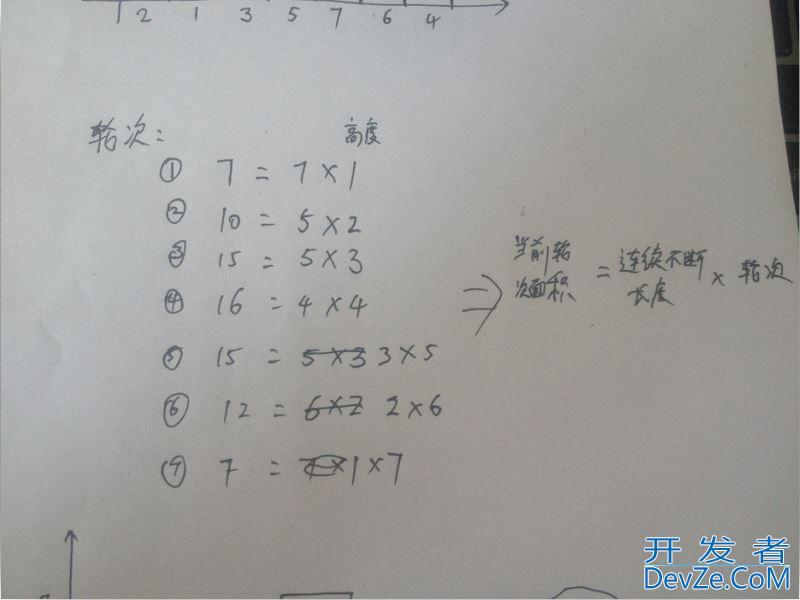 1 2 1 3 5 7 6 4
轮次: 高度
① 7 = 7 × 1
② 10 = 5 × 2
③ 15 = 5 × 3
④ 16 = 4 × 4
⑤ 15 = 5×3 3×5
⑥ 12 = 6×2 2×6
⑦ 7 = 7×1×7
⇒ 当前轮次面积 = 连续不断长度 × 轮次
开发者
DevZe.CoM